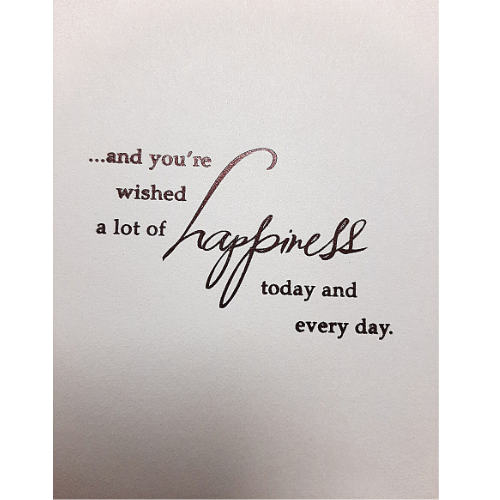 ...and you're
wished
a lot of happiness
today and
every day.